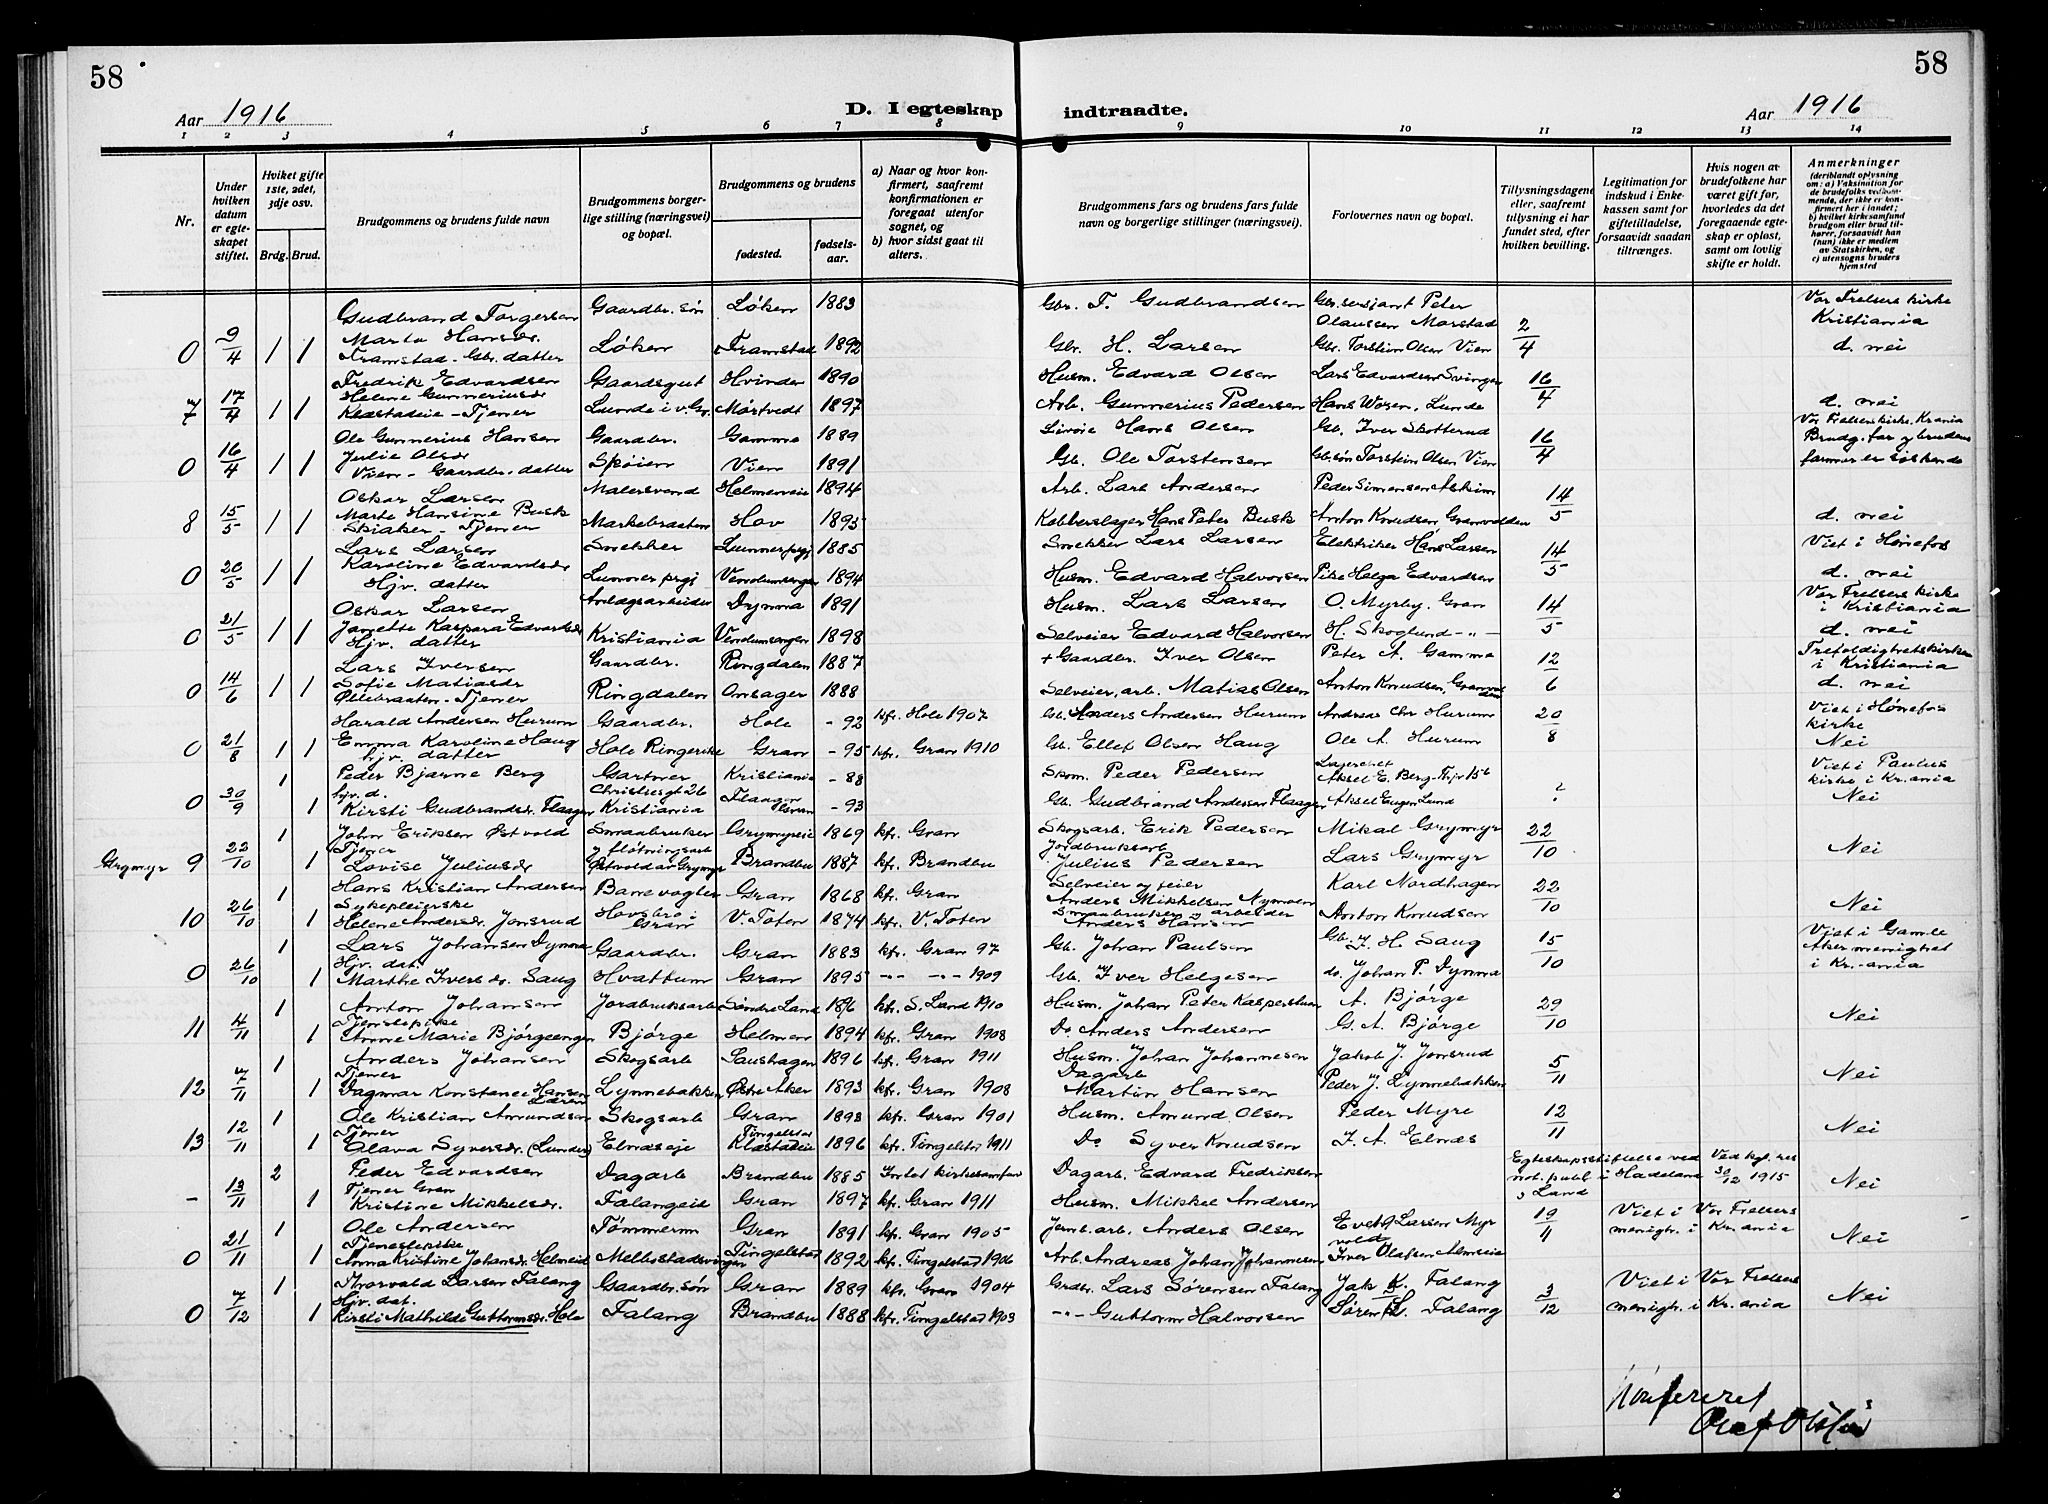 58
58
Aar 1916
D. I egteskap indtraadte.
Aar 1916
1 2 3 4 5 6 7 8 9 10 11 12 13 14
Nr.
Under hvilken datum er egteskapet stiftet.
Hviket gifte 1ste, 2det, 3dje osv.
Brdg. Brud.
Brudgommens og brudens fulde navn
Brudgommens borgerlige stilling (næringsvei) og bopæl.
Brudgommens og brudens
fødested. fødselsaar.
a) Naar og hvor konfirmert, saafremt konfirmationen er foregaat utenfor sognet, og
b) hvor sidst gaat til alters.
Brudgommens fars og brudens fars fulde navn og borgerlige stillinger (næringsvei).
Forlovernes navn og bopæl.
Tillysningsdagene eller, saafremt tillysning ei har fundet sted, efter hvilken bevilling.
Legitimation for indskud i Enkekassen samt for giftetilladelse, forsaavidt saadan tiltrænges.
Hvis nogen av brudefolkene har været gift før, hvorledes da det foregaaende egteskap er opløst, samt om lovlig skifte er holdt.
Anmerkninger
(deriblandt oplysning om: a) Vaksination for de brudefolks vedkommende, der ikke er konfirmert her i landet; b) hvilket kirkesamfund brudgom eller brud tilhører, forsaavidt han (hun) ikke er medlem av Statskirken, og c) utensogns bruders hjemsted
Gudbrand Torgersen Gaardbr. søn Løken 1883 Gbr. T. Gudbrandsen Gbr. sersjant Peter Olaussen Morstad Vor Frelsers kirke Kristiania
0 9/4 1 1 Marta Hansdr. Framstad - Gbr. datter Løken Framstad 1892 Gbr. H. Larsen Gbr. Torstein Olsen Vien 2/4 d. nei
Fredrik Edvardsen Gaardsgut Hvinden 1890 Husm. Edvard Olsen Lars Edvardsen Svingen
7 17/4 1 1 Helene Gunneriusdr. Klæstadeie - Tjener Lunde i v. Gr. Mørtvedt 1897 Arb. Gunnerius Pedersen Hans Woxen, Lunde 16/4 d. nei
Ole Gunnerius Hansen Gaardbr. Gamme 1889 Hans Olsen Gb. Iver Skotterud Vor Frelsers kirke, Krania
0 16/4 1 1 Julie Olsdr. Vien - Gaardbr. datter Skøien Vien 1891 Gb. Ole Torstensen Gb. søn Torstein Olsen Vien 16/4 Brudg. far og brudens farmor er søskende
Oskar Larsen Malersvend Helmeneie 1894 Arb. Lars Andersen Peder Simensen Askim
8 15/5 1 1 Marte Hansine Busk Skiaker - Tjener Markebraaten Hov 1895 Kobberslager Hans Peter Busk Anton Knudsen Granvolden 14/5 d. nei
Lars Larsen Snekker Lunner prgj 1885 Snekker Lars Larsen Elektriker Hans Larsen Viet i Hønefos
0 20/5 1 1 Karoline Edvardsdr. Hjv. datter Lunner prgj Vendumsengen 1894 Husm. Edvard Halvorsen Pike Helga Edvardsen 14/5 d. nei
Oskar Larsen Anlægsarbeider Dynna 1891 Husm. Lars Larsen O. Myrby, Gran Vor Frelsers kirke i Kristiania
0 21/5 1 1 Janette Kaspara Edvardsdr. Hjv. datter Kristiania Vendumsengen 1898 Selveier Edvard Halvorsen H. Skoglund - " - 14/5 d. nei
Lars Iversen Gaardbr. Ringdalen 1887 + Gaardbr. Iver Olsen Peter A. Gamme Trefoldighetskirken i Kristiania
0 14/6 1 1 Sofie Matiasdr. Ølebraaten - Tjener Ringdalen Onsager 1888 Selveier, arb. Matias Olsen Anton Knudsen, Granvolden 12/6 d. nei
Harald Andersen Hurum Gaardbr. Hole - 92 kfr. Hole 1907 Gb. Anders Andersen Hurum Andreas Chr Hurum Viet i Hønefos kirke
0 21/8 1 1 Emma Karoline Haug hjv. datter Hole Ringerike Gran - 95 kfr. Gran 1910 Gb. Ellef Olsen Haug Ole A. Hurum 20/8 Nei
1 Peder Bjarne Berg Gartner Kristiania - 88 Skom. Peder Pedersen Aksel E. Berg - Thjv 15b Viet i Paulus kirke i Kr.ania
0 30/9 1 hjv. d. Kirsti Gudbrandsdr. Flaagen Christiesgt 26 Kristiania Flaagen Gran - 93 Gb. Gudbrand Andersen Flaagen Aksel Eugen Lund ? Nei
1 John Eriksen Østvold Smaabruker Grymyreie 1869 kfr. Gran Skogsarb. Erik Pedersen Mikal Grymyr
Grymyr 9 22/10 1 Tjener Lovise Juliusdr. & fløtningsarb. Østvold av Grymyr Brandbu 1887 kfr. Brandbu Jordbruksarb. Julius Pedersen Lars Grymyr 22/10 Nei
1 Hans Kristian Andersen Banevogter Gran 1868 kfr. Gran Selveier og feier Anders Mikkelsen Nymoen Karl Nordhagen
10 26/10 1 Sykepleierske Helene Andersdr. Jonsrud Hovsbro i Gran V. Toten 1874 kfr. V. Toten Smaabruker og arbeider Anders Hansen Anton Knudsen 22/10 Nei
1 Lars Johansen Dynna Gaardbr. Gran 1883 kfr. Gran 97 Gb. Johan Paulsen Gb. I. H. Saug Viet i Gamle Aker menighet i Kr.ania
0 26/10 1 Hjv. dat. Marthe Iversdr. Saug Hvattum Gran 1895 - " - - " - 1909 Gb. Iver Helgesen do. Johan P. Dynna 15/10
1 Anton Johansen Jordbruksarb. Søndre Land 1896 kfr. S. Land 1910 Husm. Johan Peter Kaspersen A. Bjørge
11 4/11 1 Tjenestepike Anne Marie Bjørgeengen Bjørge Helmen 1894 kfr. Gran 1908 Do Anders Andersen G. A. Bjørge 29/10 Nei
1 Anders Johansen Skogsarb. Saushagen 1896 kfr. Gran 1911 Husm. Johan Johannesen Jakob J. Jonsrud
12 7/11 1 Tjener Dagmar Konstance Hansen Lynnebakken Østre Aker 1893 kfr. Gran 1908 Dagarb. Martin Hansen Peder J. Lynnebakken 5/11 Nei
1 Ole Kristian Amundsen Skogsarb Gran 1898 kfr. Gran 1901 Husm. Amund Olsen Peder Myre
13 12/11 1 Tjener Olava Syversdr. (Lunder) Elnæseje Tingelstad Klæstadeie 1896 kfr. Tingelstd 1911 Do Syver Knudsen I. A. Elnæs 12/11 Nei
2 Peder Edvardsen Dagarb Brandbu 1885 Intet kirkesamfun Dagarb. Edvard Fredriksen Egteskapsstiftelse ved not. publ. i Hadeland & Land Ved kgl. res 30/12 1915
- 13/11 1 Tjener Gran Kristine Mikkelsdr. Falangeie Gran 1897 kfr. Gran 1911 Husm. Mikkel Andersen Nei
1 Ole Andersen Tømmerm Gran 1891 kfr. Gran 1905 Jernb. arb. Anders Olsen Larsen Myrvold Viet i Vor Frelsers menigh. i Kr.ania
0 21/11 1 Tjenestepike Anna Kristine Johansdr. Helmeid Mellostadsvingen Tingelstad 1892 kfr. Tingelstad 1906 Arb. Andreas Johan Johannesen Iver Olafsen Almseie 19/11 Nei
1 Thorvald Larsen Falang Gaardbr. søn Gran 1889 kfr. Gran 1904 Grdbr. Lars Sørensen Falang Jak K. Falang Viet i Vor Frelsers menigh. i Kr.ania
0 7/12 1 Hjv. dat. Kirsti Mathilde Guttormsdr. Hole Falang Brandbu 1888 kfr. Tingelstad 1903 - " - Guttorm Halvorsen Søren L. Falang 3/12 Nei
Konfereret